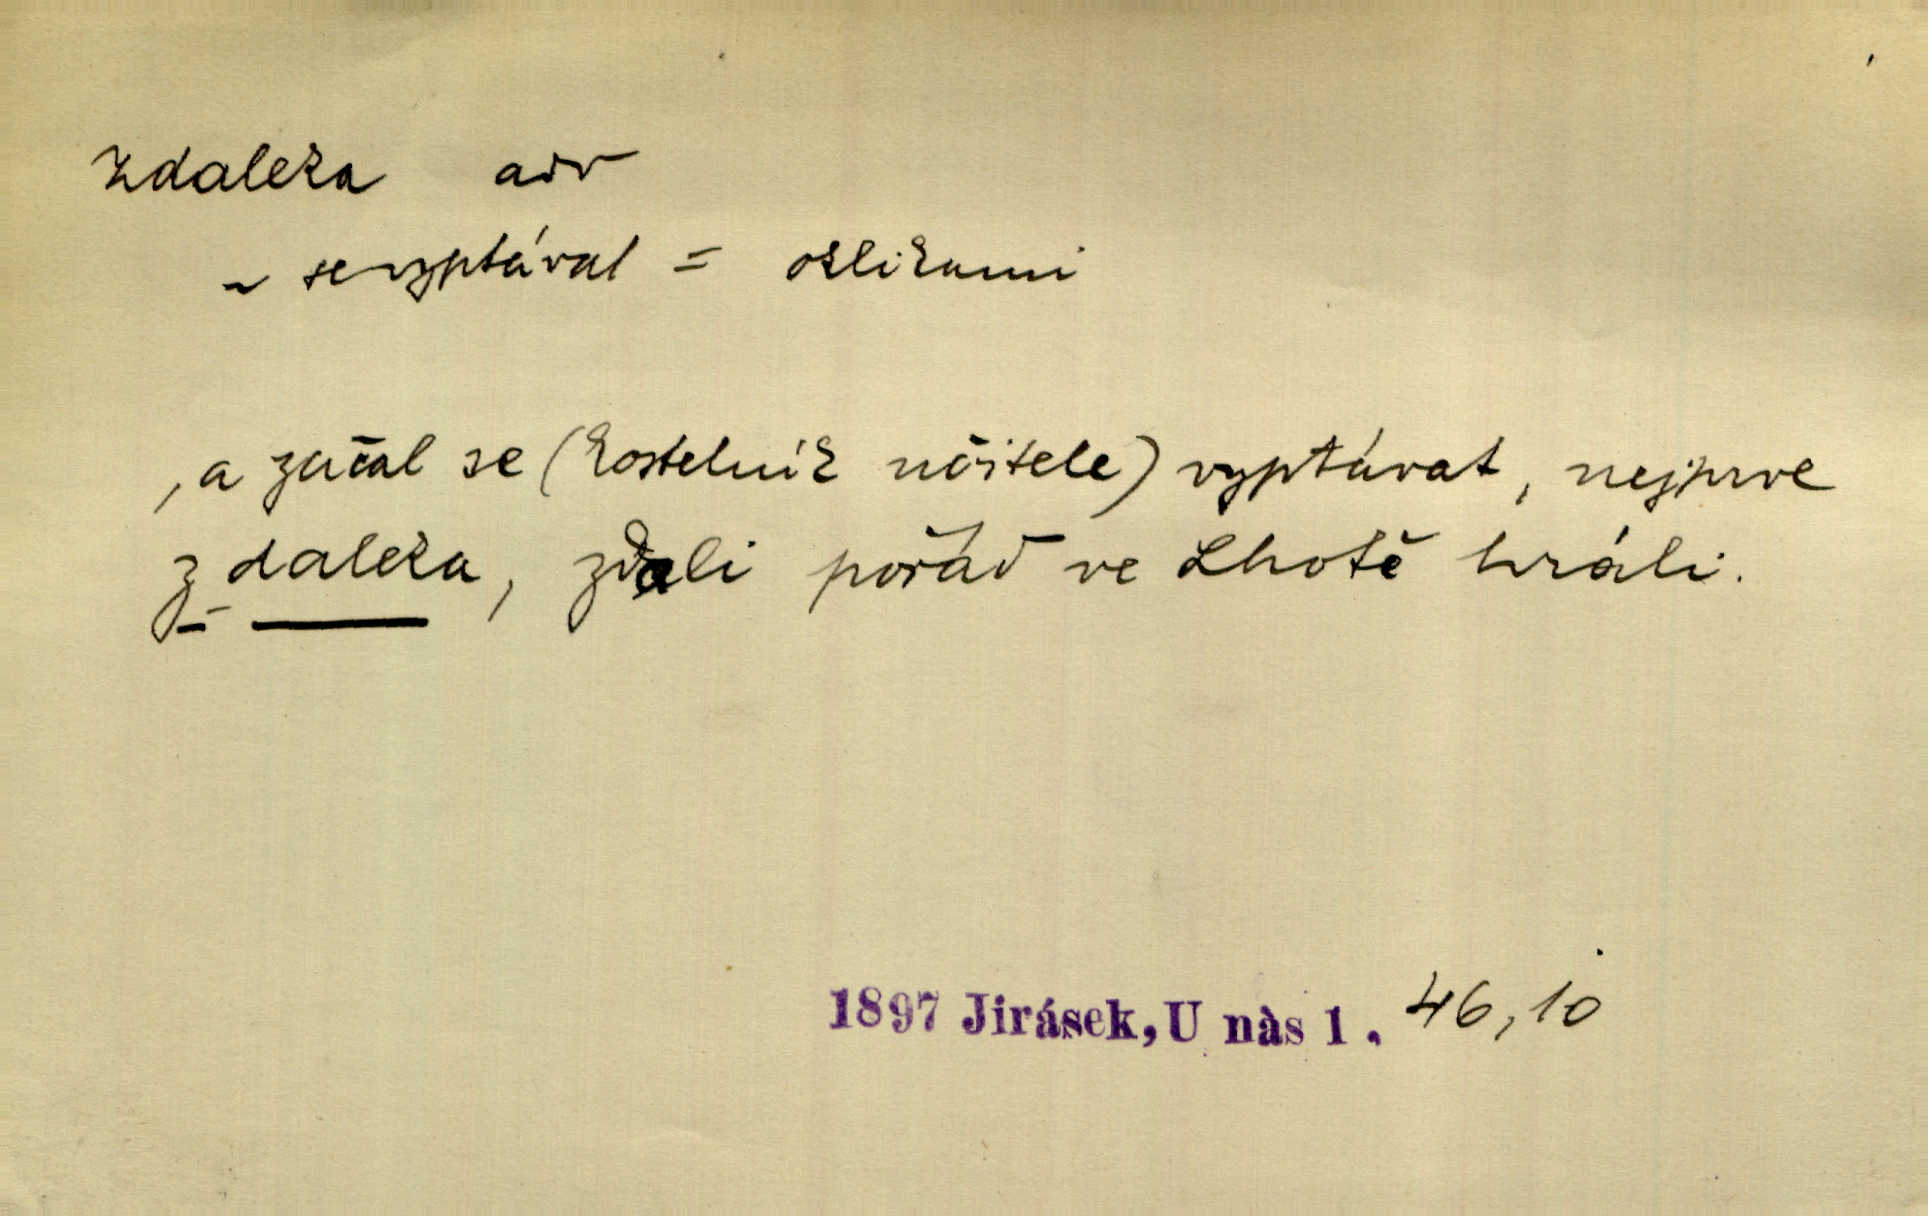 zdaleka adv
~ se vyptával = oklikami
, a začal se (kostelník učitele) vyptávat, nejprve
zdaleka, zdali pořád ve Lhotě hráli.
1897 Jirásek, U nàs 1. 46,10